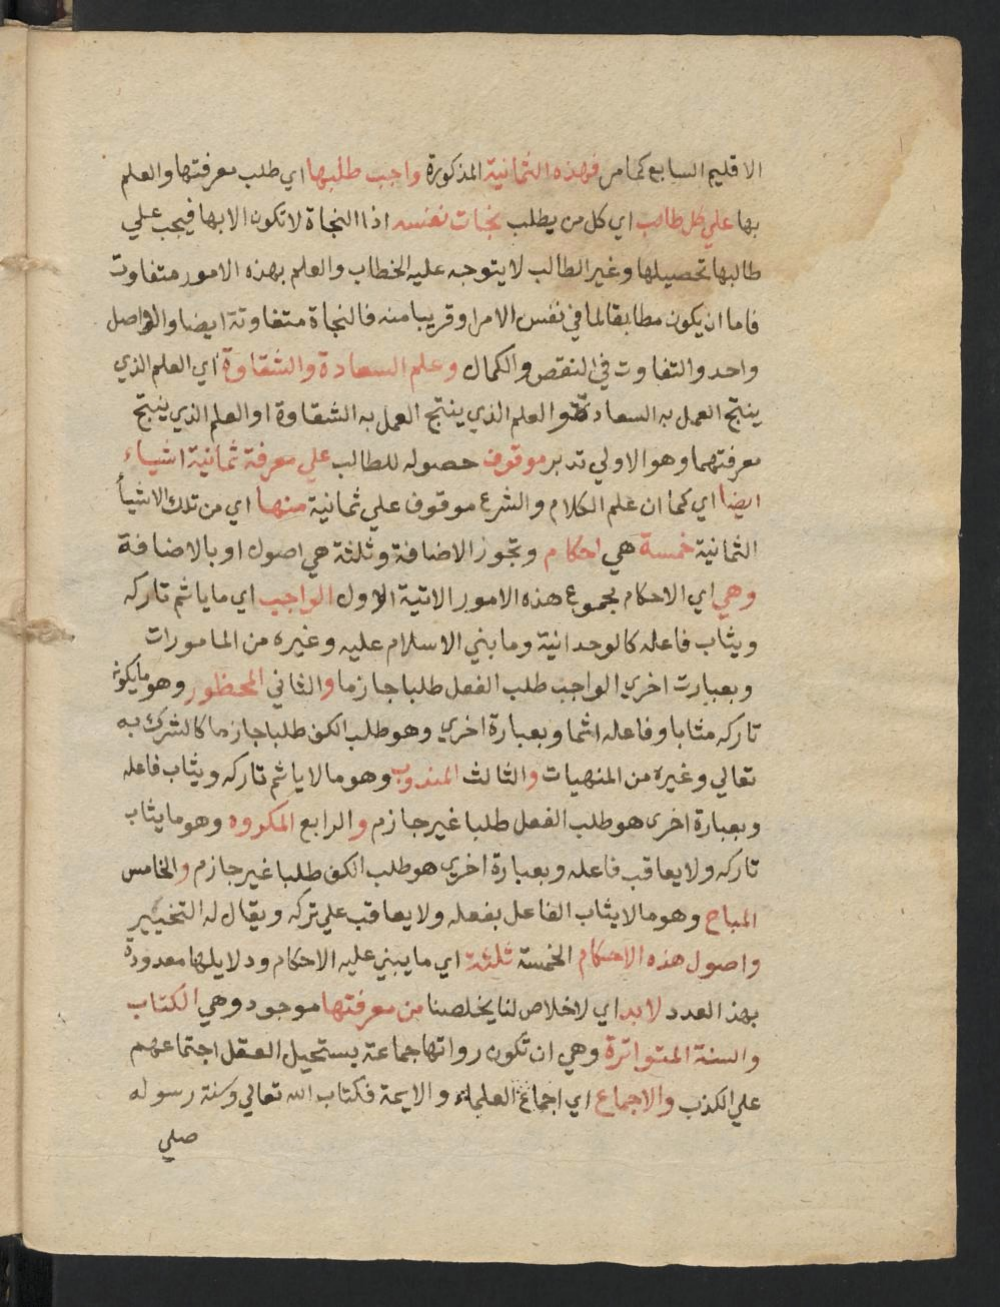 الاقليم السابع كما مر فهذه الثمانية المذكورة واجب طلبها اي طلب معرفتها والعلم
بها علي كل طالب اي كل من يطلب نجات نفسه اذا النجاة لا تكون الا بها فيجب علي
طالبها تحصيلها وغير الطالب لا يتوجه عليه الخطاب والعلم بهذه الامور متفاوت
فاما ان يكون مطابقا لما في نفس الامر او قريبا منه فالنجاة متفاوتة ايضا والواصل
واحد والتفاوت في النقص والكمال وعلم السعادة والشقاوة اي العلم الذي
ينتج العمل به السعادة والعلم الذي ينتج العمل به الشقاوة او العلم الذي ينتج
معرفتهما وهو الاولي تدبر موقوف حصوله للطالب علي معرفة ثمانية اشياء
ايضا اي كما ان علم الكلام والشرع موقوف علي ثمانية منها اي من تلك الاشيأ
الثمانية خمسة هي احكام وتجوز الاضافة وثلثة هي اصول او بالاضافة
وهي اي الاحكام مجموع هذه الامور الاتية الاول الواجب اي ما ياثم تاركه
ويثاب فاعله كالوحدانية وما بني الاسلام عليه وغيره من المامورات
وبعبارت اخري الواجب طلب الفعل طلبا جازما والثاني المحظور وهو ما يكون
تاركه مثابا وفاعله اثما وبعبارة اخري وهو طلب الكف طلبا جازما كالشرك به
تعالي وغيره من المنهيات والثالث المندوب وهو ما لا ياثم تاركه ويثاب فاعله
وبعبارة اخرى هو طلب الفعل طلبا غير جازم والرابع المكروه وهو ما يثاب
تاركه ولا يعاقب فاعله وبعبارة اخري هو طلب الكف طلبا غير جازم والخامس
المباح وهو ما لا يثاب الفاعل بفعله ولا يعاقب علي تركه ويقال له التخيير
واصول هذه الاحكام الخمسة ثلثة اي ما يبني عليه الاحكام ودلايلها معدودة
بهذ العدد لا بد اي لا خلاص لنا يخلصنا من معرفتها موجود وهي الكتاب
والسنة المتواترة وهي ان تكون رواتها جماعة يستحيل العقل اجتماعهم
علي الكذب والاجماع اي اجماع العلماء والايمة فكتاب الله تعالي وسنة رسوله
صلي